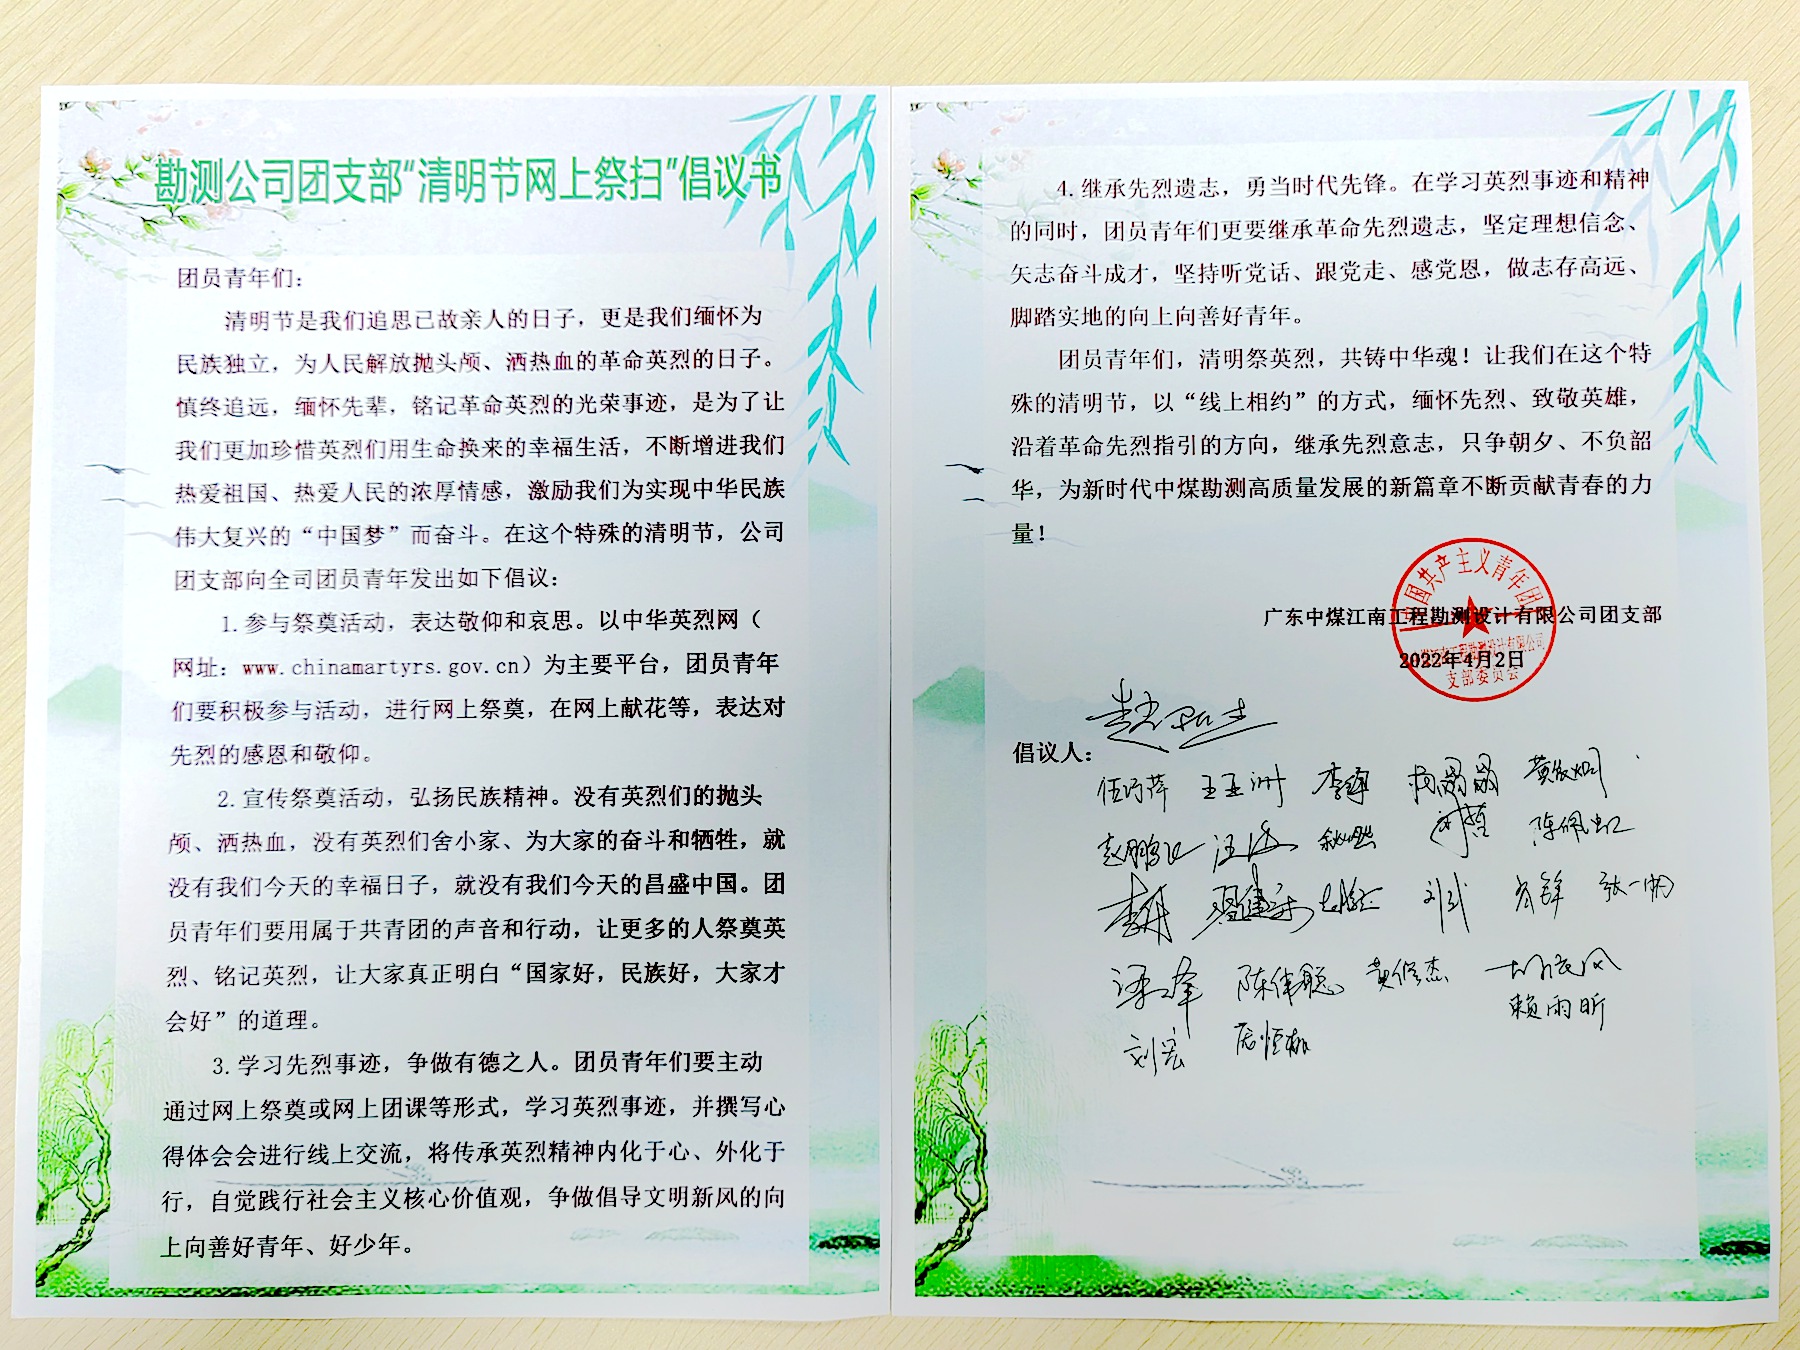 勘测公司团支部“清明节网上祭扫”倡议书
团员青年们：
清明节是我们追思已故亲人的日子，更是我们缅怀为
民族独立，为人民解放抛头颅、洒热血的革命英烈的日子。
慎终追远，缅怀先辈，铭记革命英烈的光荣事迹，是为了让
我们更加珍惜英烈们用生命换来的幸福生活，不断增进我们
热爱祖国、热爱人民的浓厚情感，激励我们为实现中华民族
伟大复兴的“中国梦”而奋斗。在这个特殊的清明节，公司
团支部向全司团员青年发出如下倡议：
1.参与祭奠活动，表达敬仰和哀思。以中华英烈网（
网址：www.chinamartyrs.gov.cn）为主要平台，团员青年
们要积极参与活动，进行网上祭奠，在网上献花等，表达对
先烈的感恩和敬仰。
2.宣传祭奠活动，弘扬民族精神。没有英烈们的抛头
颅、洒热血，没有英烈们舍小家、为大家的奋斗和牺牲，就
没有我们今天的幸福日子，就没有我们今天的昌盛中国。团
员青年们要用属于共青团的声音和行动，让更多的人祭奠英
烈、铭记英烈，让大家真正明白“国家好，民族好，大家才
会好”的道理。
3.学习先烈事迹，争做有德之人。团员青年们要主动
通过网上祭奠或网上团课等形式，学习英烈事迹，并撰写心
得体会会进行线上交流，将传承英烈精神内化于心、外化于
行，自觉践行社会主义核心价值观，争做倡导文明新风的向
上向善好青年、好少年。
4.继承先烈遗志，勇当时代先锋。在学习英烈事迹和精神
的同时，团员青年们更要继承革命先烈遗志，坚定理想信念、
矢志奋斗成才，坚持听党话、跟党走、感党恩，做志存高远、
脚踏实地的向上向善好青年。
团员青年们，清明祭英烈，共铸中华魂！让我们在这个特
殊的清明节，以“线上相约”的方式，缅怀先烈、致敬英雄，
沿着革命先烈指引的方向，继承先烈意志，只争朝夕、不负韶
华，为新时代中煤勘测高质量发展的新篇章不断贡献青春的力
量！
中国共产主义青年团
广东中煤江南工程勘测设计有限公司团支部
2022年4月2日
支部委员会
倡议人：
王亚洲
陈佩虹
张一帆
陈伟聪 黄俊杰
赖雨昕
刘宏